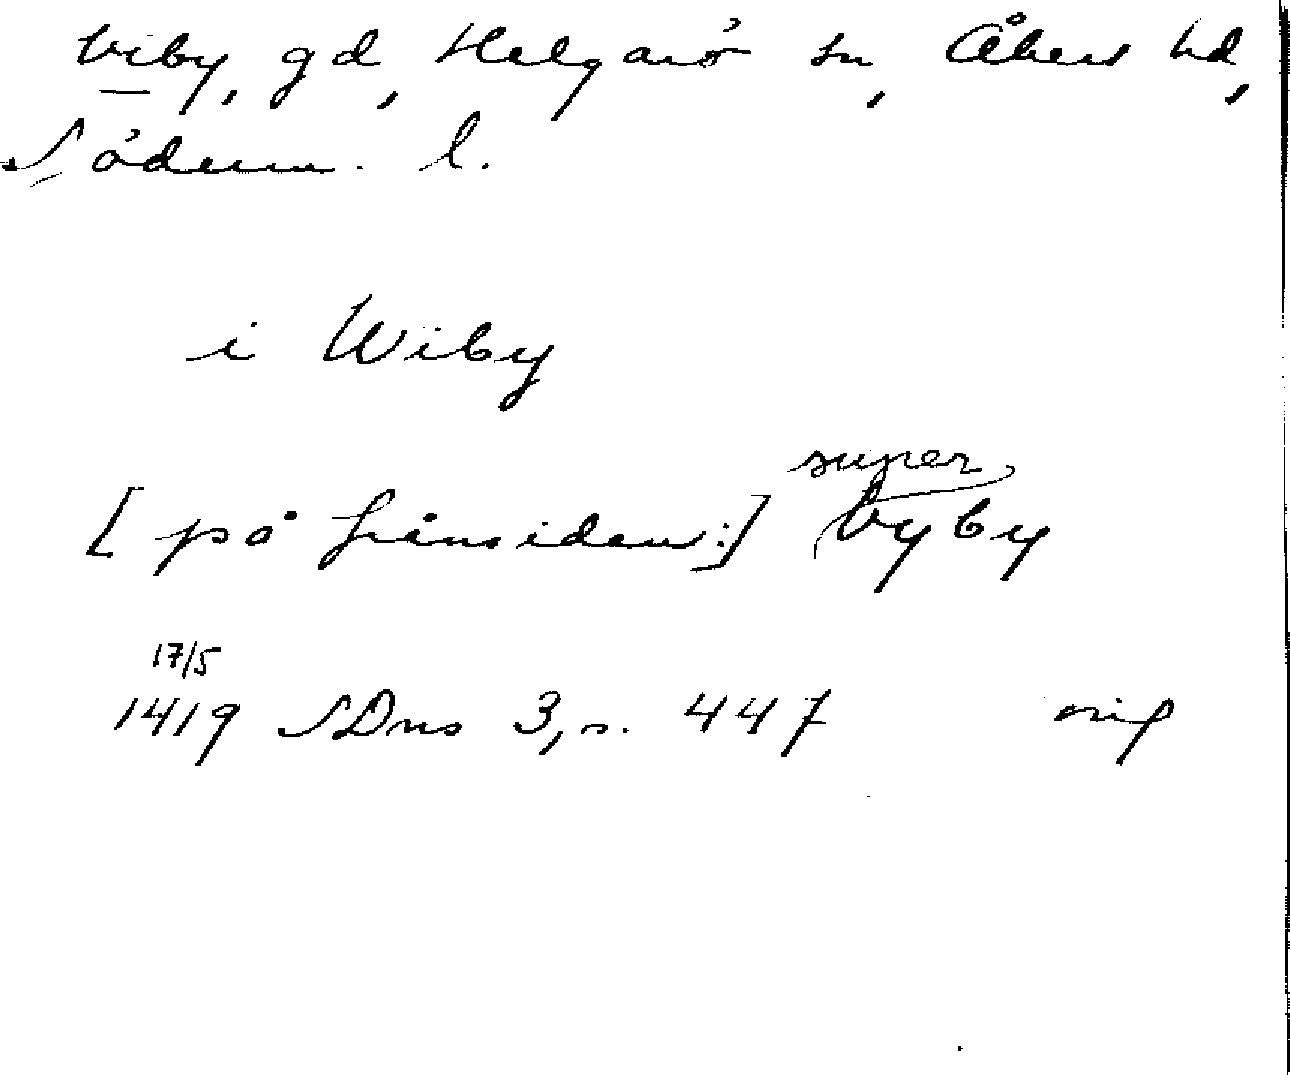 Viby, gd, Helgarö sn, Åkers hd,
Söderm. l.
i Wiby
super
[på frånsidan:] Vyby
17/5
1419 SDns 3, s. 447 orig